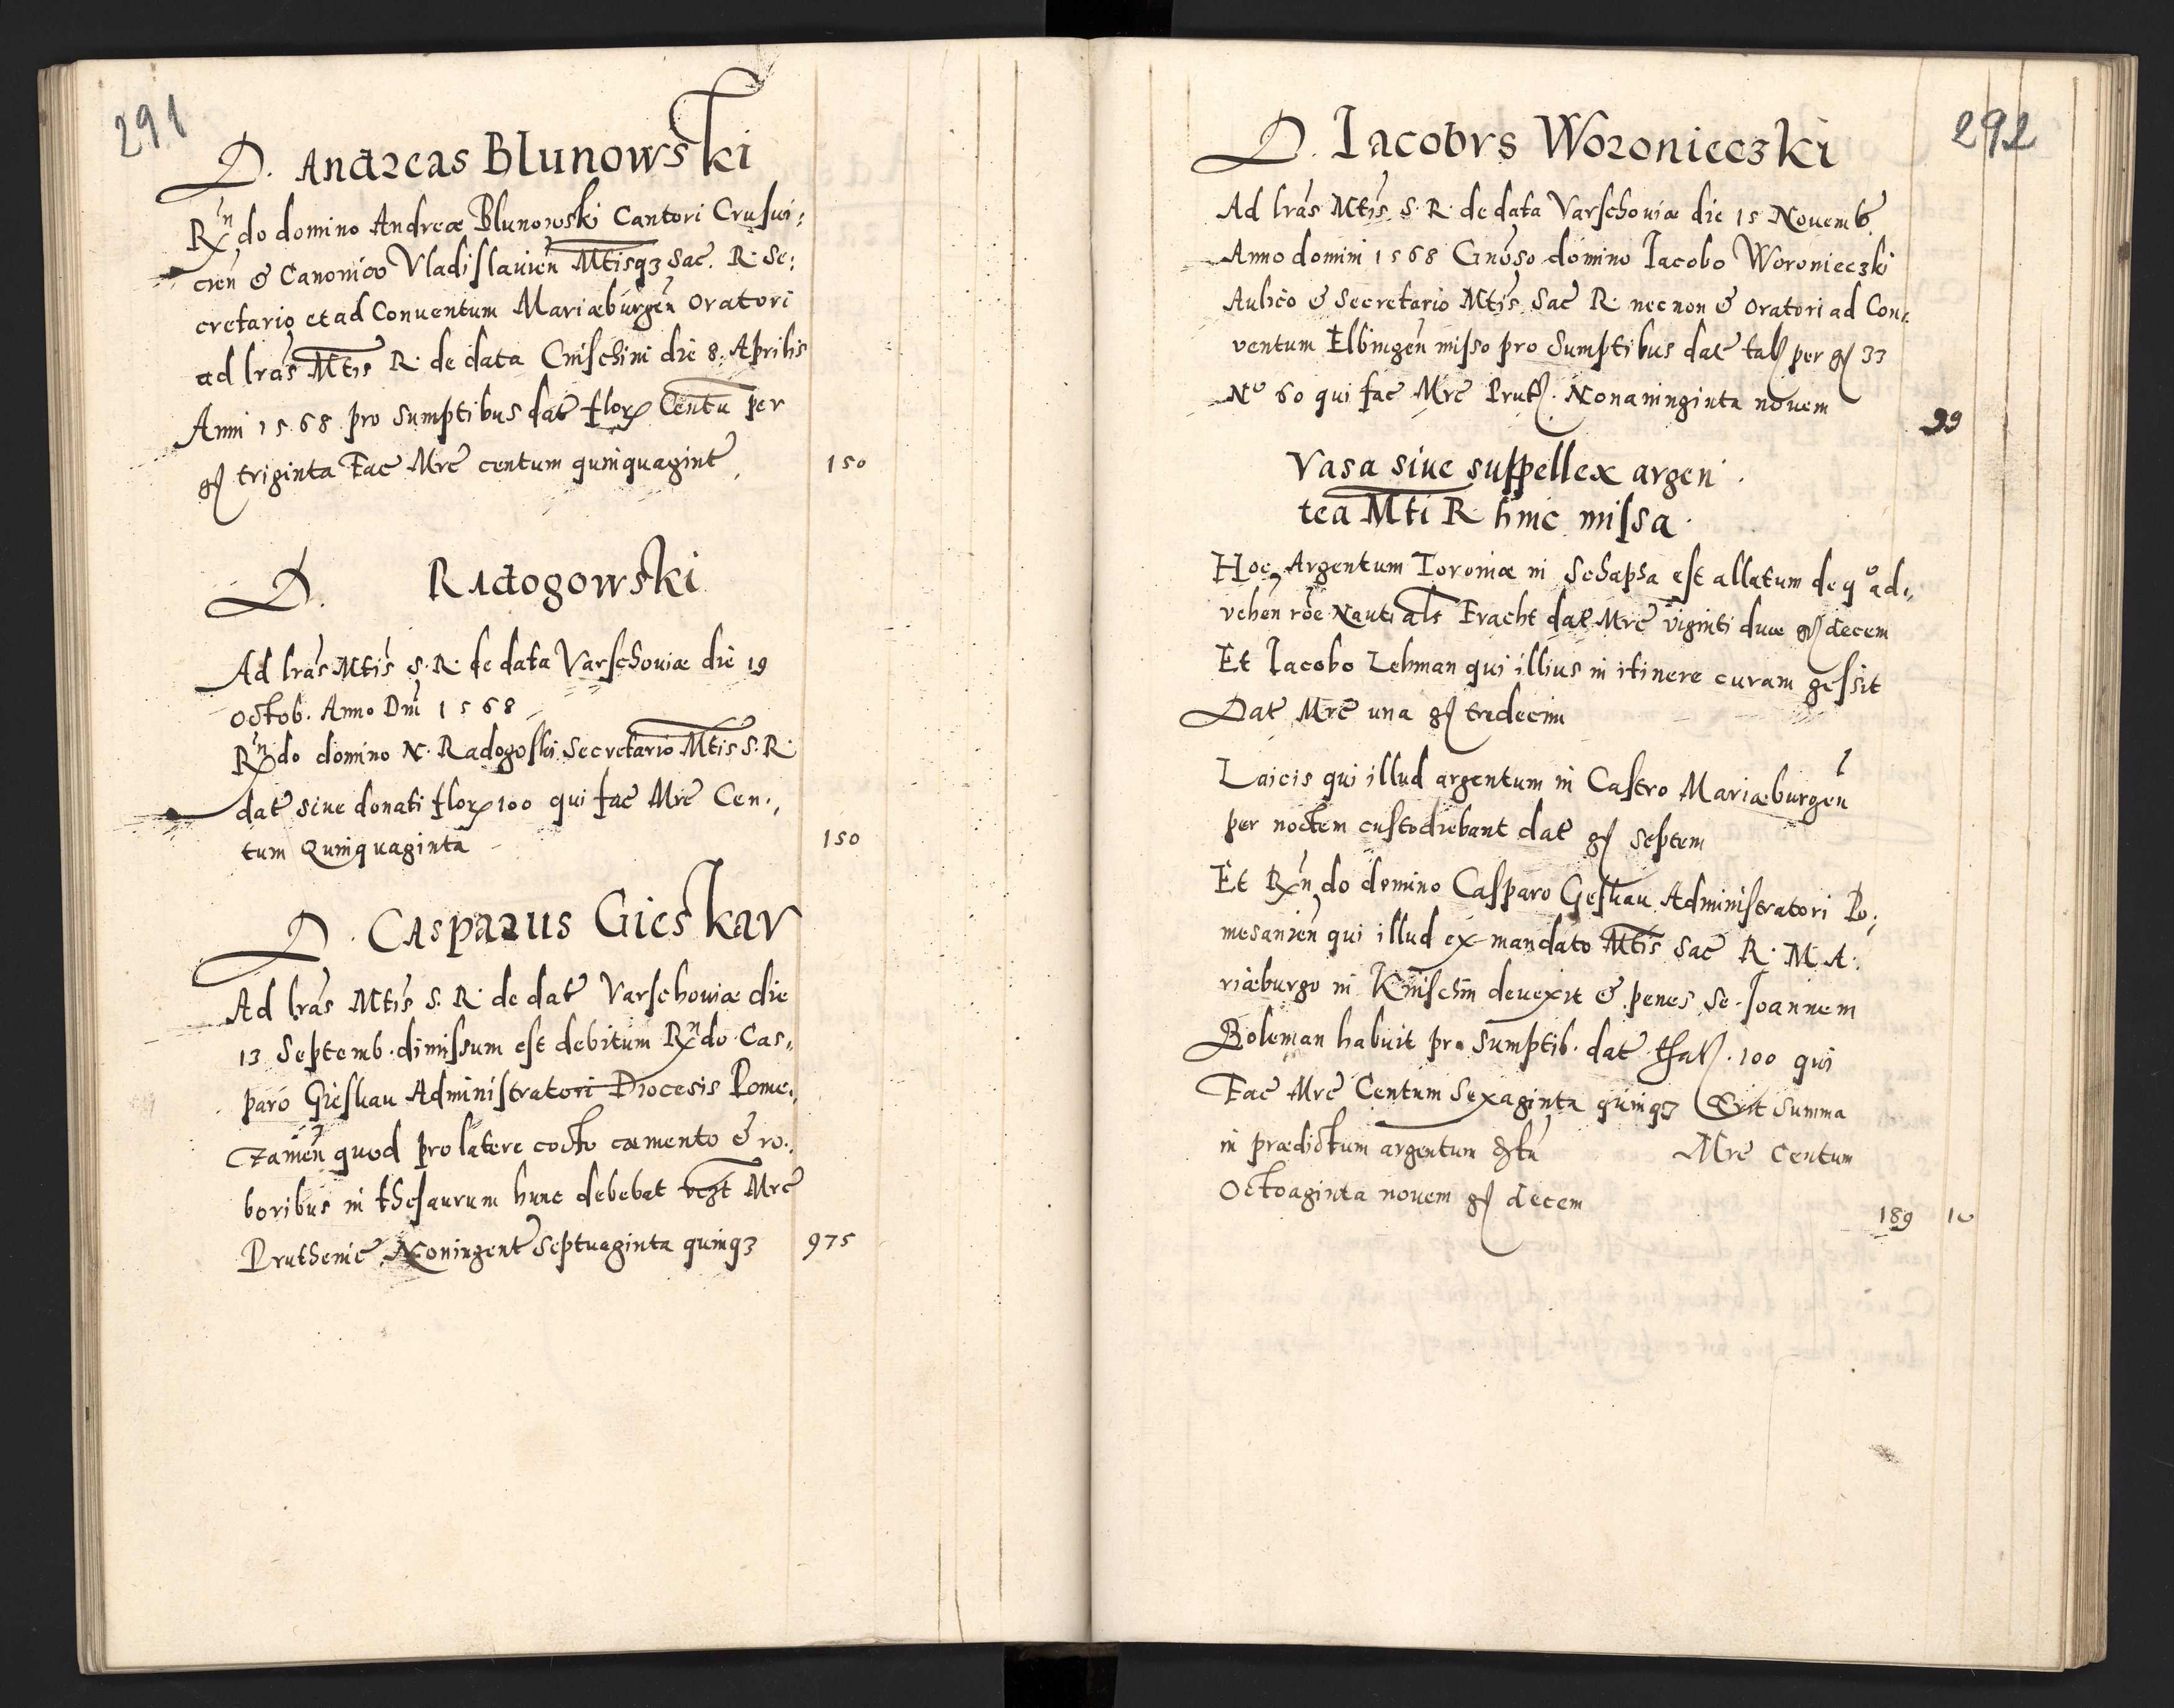 291
D. Andreas Blunowski
Rndo domino Andreæ Blunowski Cantori Crusui:
cien & Canonico Vladislauien Mtisqз Sac. R. Se:
cretario et ad Conuentum Mariæburgen Oratori
ad lras Mtis R. de data Cnischini die 8. Aprilis
Anni 1568 pro sumptibus dat flor Centu per
gr triginta Fac Mrc centum quinquagint 150
D. Radogowski
Ad lras Mtis S. R. de data Varschouiæ die 19
Octob. Anno Dni 1568
Rndo domino N. Radogoski Secretario Mtis S. R.
dat siue donati flor 100 qui fac Mrc Cen.,
tum Quinquaginta 150
D. Casparus Gieskav
Ad lras Mtis S. R. de dat Varschouiæ die
13 Septemb. dimissum est debitum Rndo Cas.,
paro Gieskau Administratori Diocesis Pome.,
zanien quod pro latere cocto cæmento & ro.,
boribus in thesaurum hunc debebat Mrc
Pruthenic. Noningent Septuaginta quinqз 975
292
D. Iacobvs Woronieczki
Ad lras Mtis S. R. de data Varschouiæ die 15 Nouemb.
Anno domini 1568 Gnoso domino Iacobo Woronieczki
Aulico & Secretario Mtis Sac R. necnon & Oratori ad Con.,
ventum Elbingen misso pro Sumptibus dat tal per gr 33
No 60 qui fac Mrc Prut. Nonaninginta novem 99
Vasa siue suppellex argen
tea Mti R. hinc missa.
Hoc Argentum Toroniæ in Schapha est allatum de quo ad.,
vehen roe Nauti als Fracht dat Mrc viginti duæ gr decem
Et Iacobo Lehman qui illius in itinere curam gessit
Dat Mrc una gr tredecim
Laicis qui illud argentum in Castro Mariæburgen
per noctem custodiebant dat gr septem
Et Rndo domino Casparo Geskau Administratori Po:
mesanien qui illud ex mandato Mtis Sac R. M. A:
riæburgo in Knischin devexit & penes se Joannem
Boleman habuit pro sumptib. dat thal. 100 qui
Fac Mrc Centum Sexaginta quinqз Erit Summa
in prædictum argentum Mrc Centum
Octoaginta novem gr decem
189 10